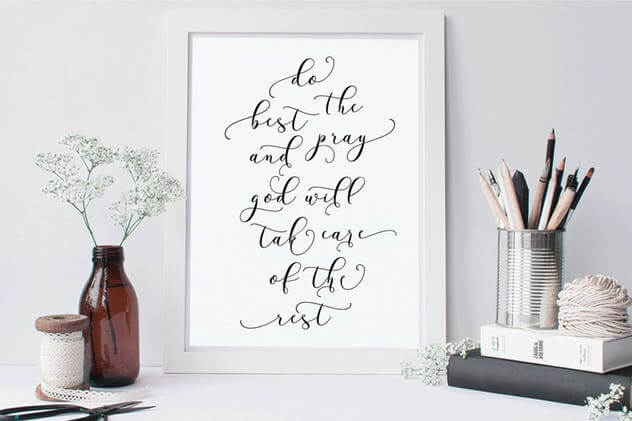 do
the
best
and pray
god will
take care
of the
rest